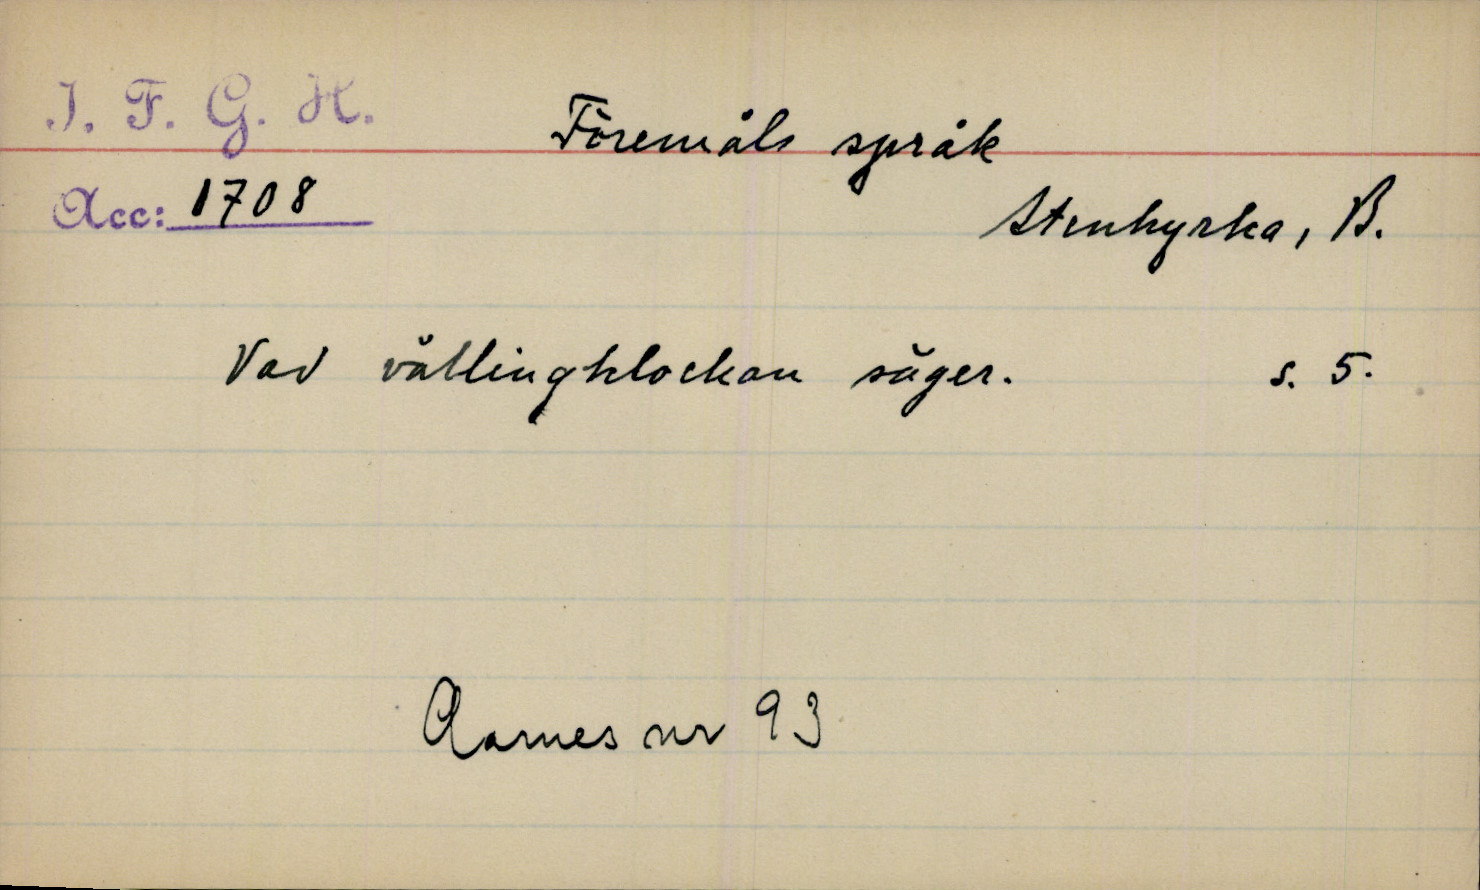 I. F. G. H.
Föremåls språk
Acc: 1708
Stenkyrka, B.
Vad vällingklockan säger. s. 5.
Aarnes nr 93